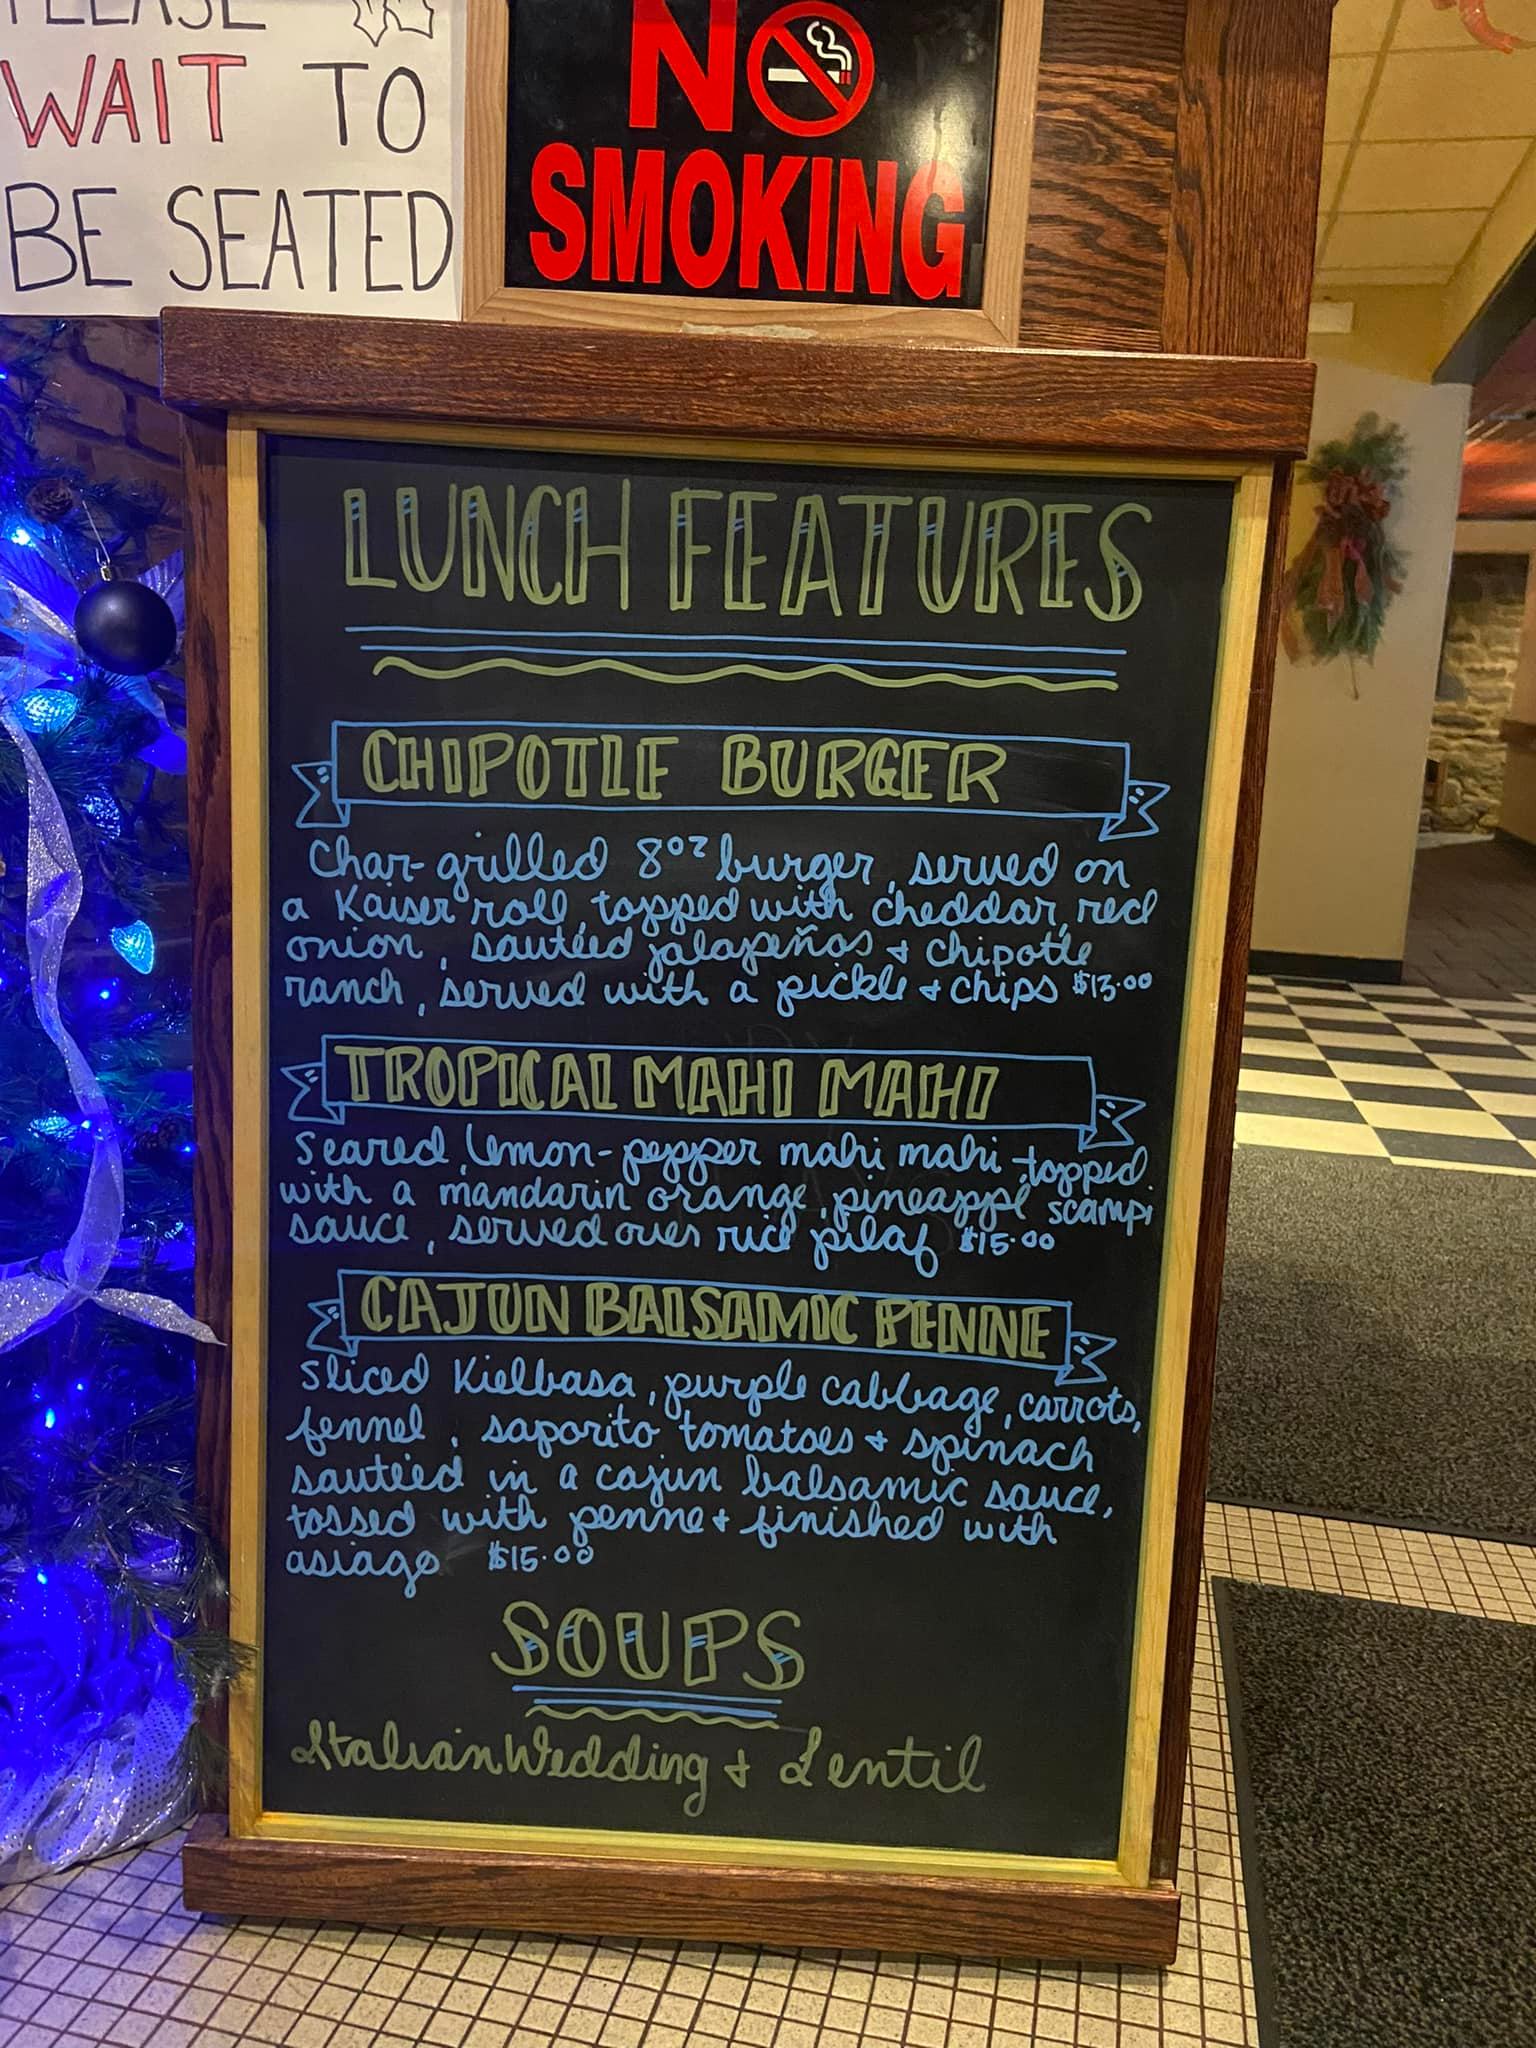 PLEASE
WAIT TO
BE SEATED
NO
SMOKING
LUNCH FEATURES
CHIPOTLE BURGER
Char-grilled 8oz burger, served on
a Kaiser roll, topped with cheddar, red
onion, sautéed jalapeños + chipotle
ranch, served with a pickle + chips $13.00
TROPICAL MAHI MAHI
Seared, lemon-pepper mahi mahi topped
with a mandarin orange, pineapple scampi
sauce, served over rice pilaf $15.00
CAJUN BALSAMIC PENNE
Sliced Kielbasa, purple cabbage, carrots,
fennel, saporito tomatoes + spinach
sautéed in a cajun balsamic sauce,
tossed with penne + finished with
asiago $15.00
SOUPS
Italian Wedding + Lentil